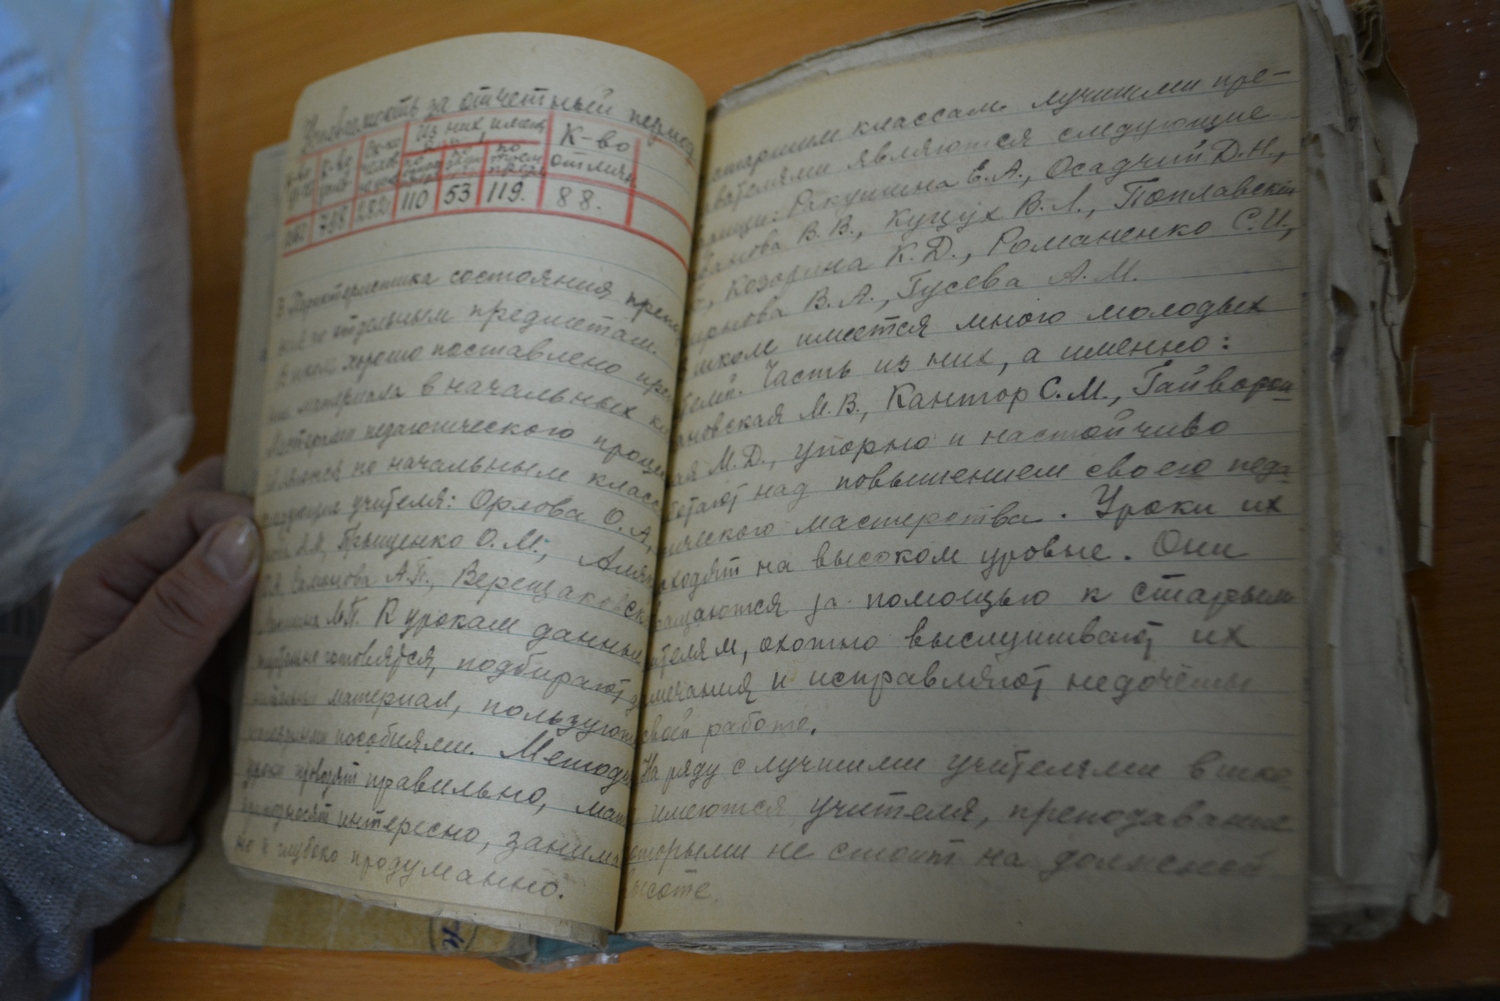 Успеваемость за отчетный период
Из них имеют
К-во
К-во
отличн.
798 282 110 53 119. 88.
3. Характеристика состояния препо
ния по отдельным предметам.
В школе хорошо поставлено пре
ние материала в начальных кл
Мастерами педагогического процес
являются по начальным класс
следующие учителя: Орлова О.А,
Грищенко О.М.,
Симонова А.П., Верещаковск
М.П. К урокам данные
готовятся, подбирают
материал, пользуют
пособиями. Методи
уроки проводят правильно, мат
преподносят интересно, занима
но и глубоко продуманно.
старшим классам лучшими пре-
вателями являются следующие
рищи: Ракушина Е.А., Осадчий Д.Н.,
банова В.В., Куцух В.Л., Поплавский
Козорина К.Д., Романенко С.И.,
В.А., Гусева А.М.
школе имеется много молодых
телей. Часть из них, а именно:
ановская М.В., Кантор С.М., Гайворон
ая М.Д., упорно и настойчиво
ботают над повышением своего педа
гического мастерства. Уроки их
оходят на высоком уровне. Они
ращаются за помощью к старым
ителям, охотно выслушивают их
мечания и исправляют недочёты
своей работе.
На ряду с лучшими учителями в шко
имеются учителя, преподавание
оторыми не стоит на должной
высоте.